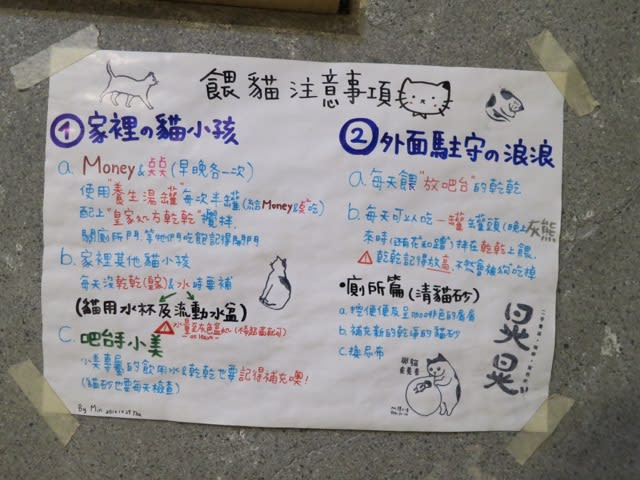 餵貓注意事項
① 家裡の貓小孩
a. Money & 点点 (早晚各一次)
使用"養生湯罐"每次半罐(給Money&点吃)
配上"皇家處方乾乾"攪拌.
關廁所門,等牠們吃飽記得開門
b. 家裡其他貓小孩
每天沒乾乾(皇家)&水 時要補
(貓用水杯及流動水盆)
C. 吧台手小美
小美專屬的飲用水&乾乾也要記得補充噢!
(貓砂也要每天檢查)
By Min
② 外面駐守の浪浪
a. 每天餵"放吧台"的乾乾
b. 每天可以吃一罐罐頭(晚上灰熊
來時 拌在乾乾上餵.
乾乾記得放高,不然會被狗吃掉
•廁所篇(清貓砂)
a. 挖便便及呈 啡色的
b. 補充新的乾淨的貓砂
c. 換尿布
晃晃